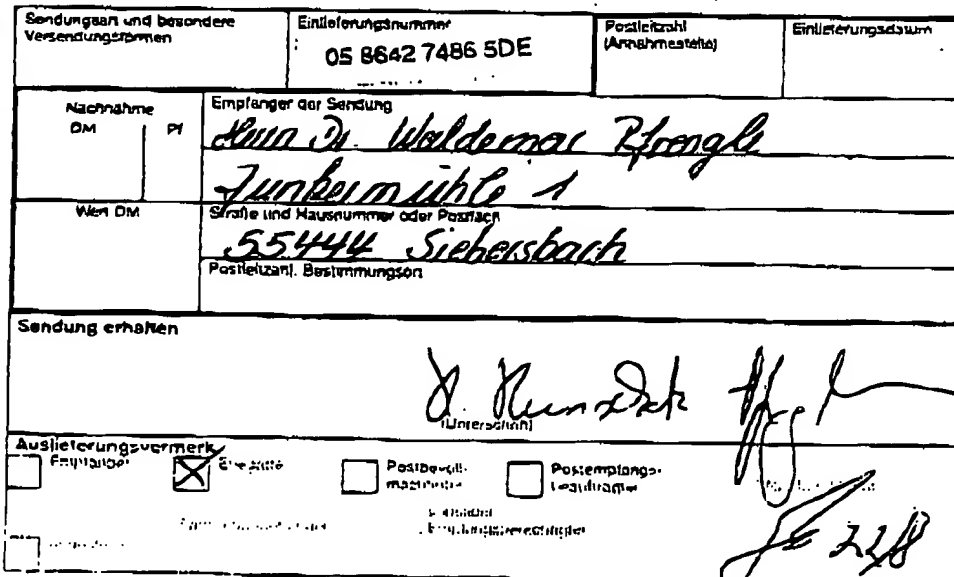 Sendungsart und besondere Versendungsformen
Einlieferungsnummer
05 8642 7486 5DE
Postleitzahl (Annahmestelle)
Einlieferungsdatum
Nachnahme
DM Pf
Empfänger der Sendung
Herrn Dr. Waldemar Pfrengle
Junkermühle 1
Wert DM
Straße und Hausnummer oder Postfach
55444 Siebersbach
Postleitzahl, Bestimmungsort
Sendung erhalten
(Unterschrift)
Auslieferungsvermerk
Empfänger
Ehegatte
Postbevoll-
mächtigter
Postempfangs-
beauftragter
22/8